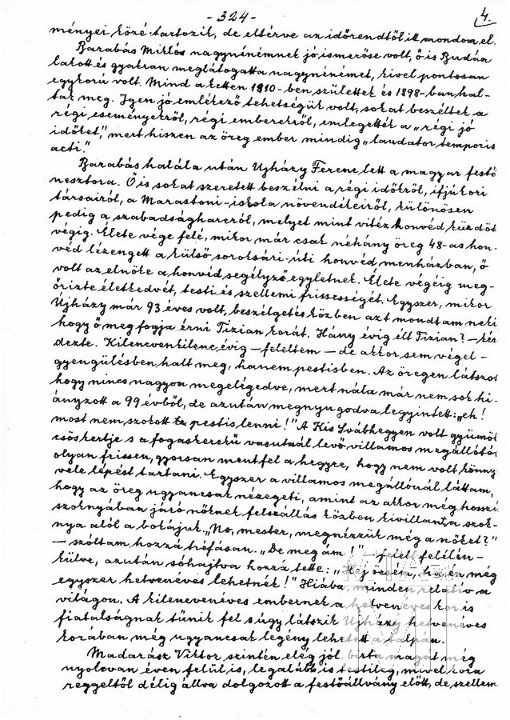 -324-
4.
ményei közé tartozik, de eltérve az időrendtől itt mondom el.
Barabás Miklós nagynénémnek jó ismerőse volt, ő is Budán
lakott és gyakran meglátogatta nagynénémet, kivel pontosan
egykorú volt. Mind a ketten 1810-ben születtek és 1898-ban hal-
tak meg. Igen jó emlékező tehetségük volt, sokat beszéltek a
régi eseményekről, régi emberekről, emlegették a „régi jó
időket," mert hiszen az öreg ember mindig „laudator temporis
acti."
Barabás halála után Ujházy Ferenc lett a magyar festő
nesztora. Ő is sokat szeretett beszélni a régi időkről, ifjúkori
társairól, a Marastoni-iskola növendékeiről, különösen
pedig a szabadságharcról, melyet mint vitéz honvéd küzdött
végig. Élete vége felé, mikor már csak néhány öreg 48-as hon-
véd lézengett a külső soroksári-úti honvéd menházban, ő
volt az elnöke a honvéd segélyző egyletnek. Élete végéig meg-
őrizte életkedvét, testi és szellemi frissességét. Egyszer, mikor
Ujházy már 93 éves volt, beszélgetés közben azt mondtam neki
hogy ő meg fogja érni Tizian korát. Hány évig élt Tizian? - kér
dezte. Kilencvenkilenc évig - feleltem - de akkor sem végel-
gyengülésben halt meg, hanem pestisben. Az öregen látszot
hogy nincs nagyon megelégedve, mert nála már nem sok hi-
ányzott a 99 évből, de azután megnyugodva legyintett: „eh!
most nem szokott pestis lenni!" A Kis Svábhegyen volt gyümöl
csöskertje s a fogaskerekű vasutnál levő villamos megállótól
olyan frissen, gyorsan ment fel a hegyre, hogy nem volt könny
vele lépést tartani. Egyszer a villamos megállónál láttam,
hogy az öreg ugyancsak nézegeti, amint az akkor még hosszú
szoknyában járó nőknek felszállás közben kivillant a szok-
nya alól a bokájuk. „No, mester, megnézzük még a nőket?"
- szóltam hozzá tréfásan. „De meg ám!" - felelt felélén-
külve, azután sóhajtva hozzá tette: „Hej öcsém, ha én még
egyszer hetvenéves lehetnék!" Hiába, minden relativ a
világon. A kilencvenéves embernek a hetvenéves kor is
fiatalságnak tűnik fel s úgy látszik Ujházy hetvenéves
korában még ugyancsak legény lehetett a talpán.
Madarász Viktor szintén elég jól birta magát még
nyolcvan éven felül is, legalább is testileg, mivel kora
reggeltől délig állva dolgozott a festőállvány előtt, de szellem